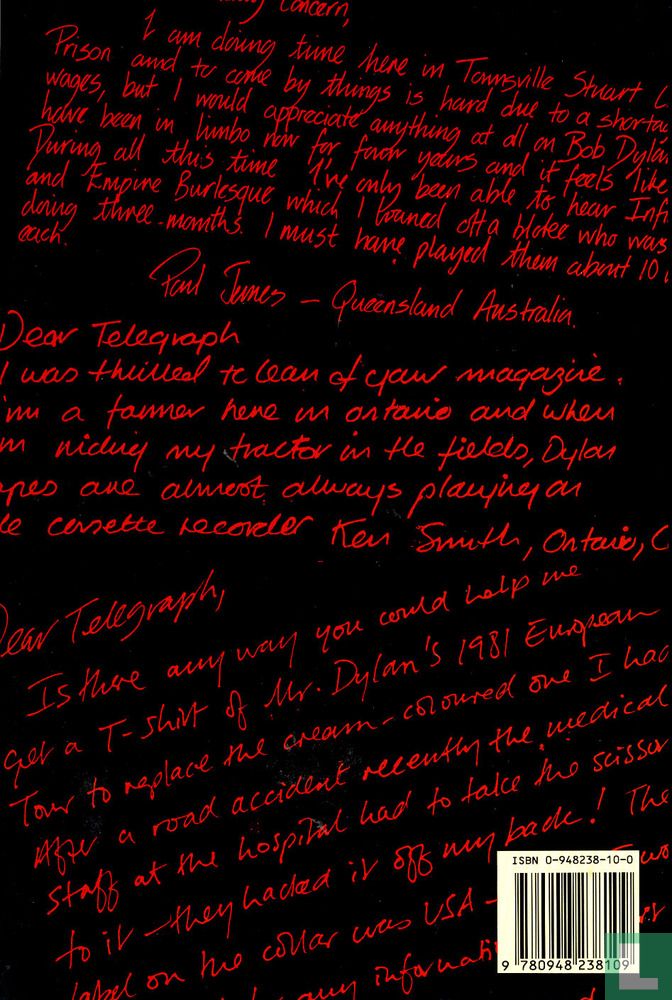 Concern,
I am doing time here in Townsville Stuart
Prison and to come by things is hard due to a shorta
wages, but I would appreciate anything at all on Bob Dylan
have been in limbo now for four years and it feels like
During all this time I've only been able to hear Inf
and Empire Burlesque which I loaned off a bloke who was
doing three months. I must have played them about 10
each.
Paul James – Queensland Australia.
Dear Telegraph
I was thrilled to learn of your magazine.
I'm a farmer here in ontario and when
m riding my tractor in the fields, Dylan
apes are almost always playing on
le cassette recorder Ken Smith, Ontario, C
Dear Telegraph,
Is there any way you could help me
get a T-shirt of Mr. Dylan's 1981 European
Tour to replace the cream-coloured one I had
After a road accident recently the medical
staff at the hospital had to take the scissor
to it – they hacked it off my back! The
label on the collar was USA –
any informati
ISBN 0-948238-10-0
9 780948 238109